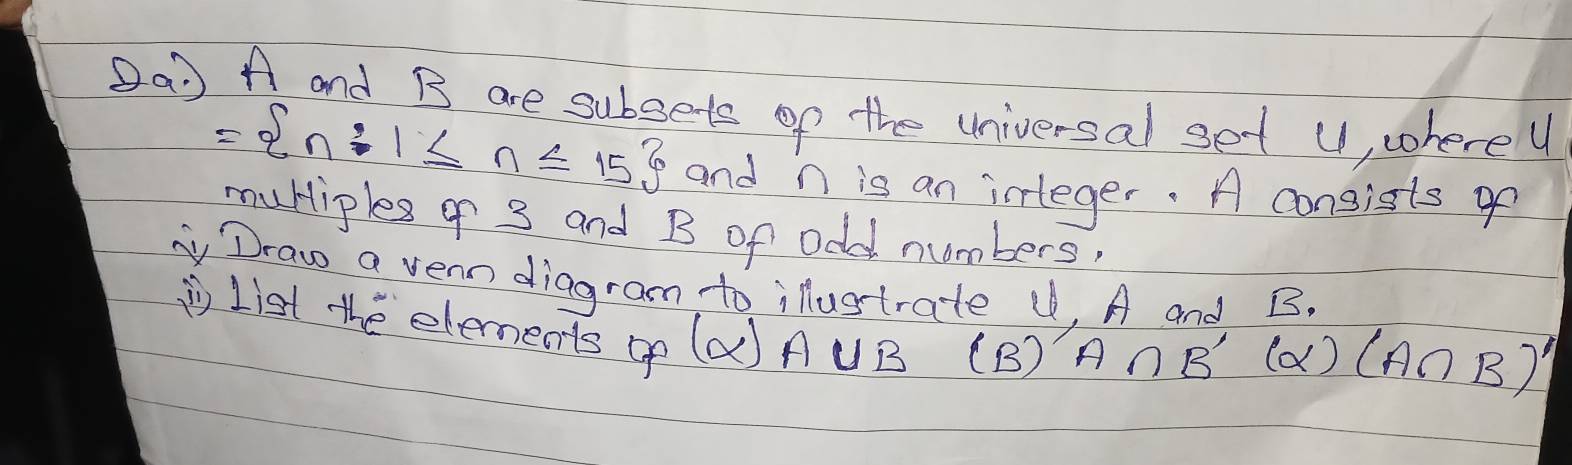 Qa.) A and B are subsets of the universal set U, where U
= {n : 1 ≤ n ≤ 15} and n is an integer. A consists of
multiples of 3 and B of odd numbers.
i) Draw a venn diagram to illustrate U, A and B.
ii) List the elements of (α) A ∪ B (B) A ∩ B' (α) (A ∩ B)'